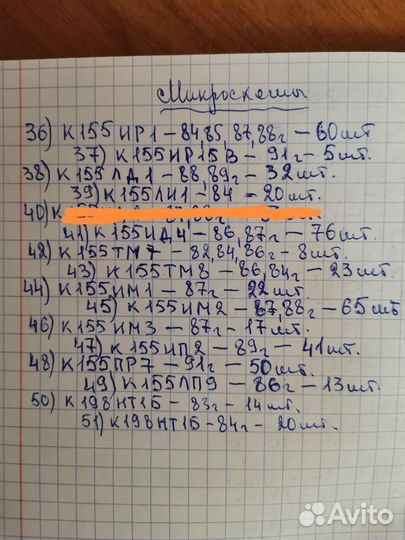 Микросхемы
36) К155ИР1 – 84,85,87,88г – 60шт
37) К155ИР15В – 91г – 5шт.
38) К155ЛД1 – 88,89г – 32шт.
39) К155ЛИ1 – 84 – 20шт.
40) К
41) К155ИД4 – 86,87г – 76шт
42) К155ТМ7 – 82,84,86г – 8шт.
43) К155ТМ8 – 86,84г – 23шт.
44) К155ИМ1 – 87г – 22шт.
45) К155ИМ2 – 87,88г – 65шт
46) К155ИМ3 – 87г – 17шт.
47) К155ИП2 – 89г – 41шт.
48) К155ПР7 – 91г – 50шт.
49) К155ЛП9 – 86г – 13шт.
50) К198НТ1Б – 83г – 14шт.
51) К198НТ1Б – 84г – 20шт.
Avito